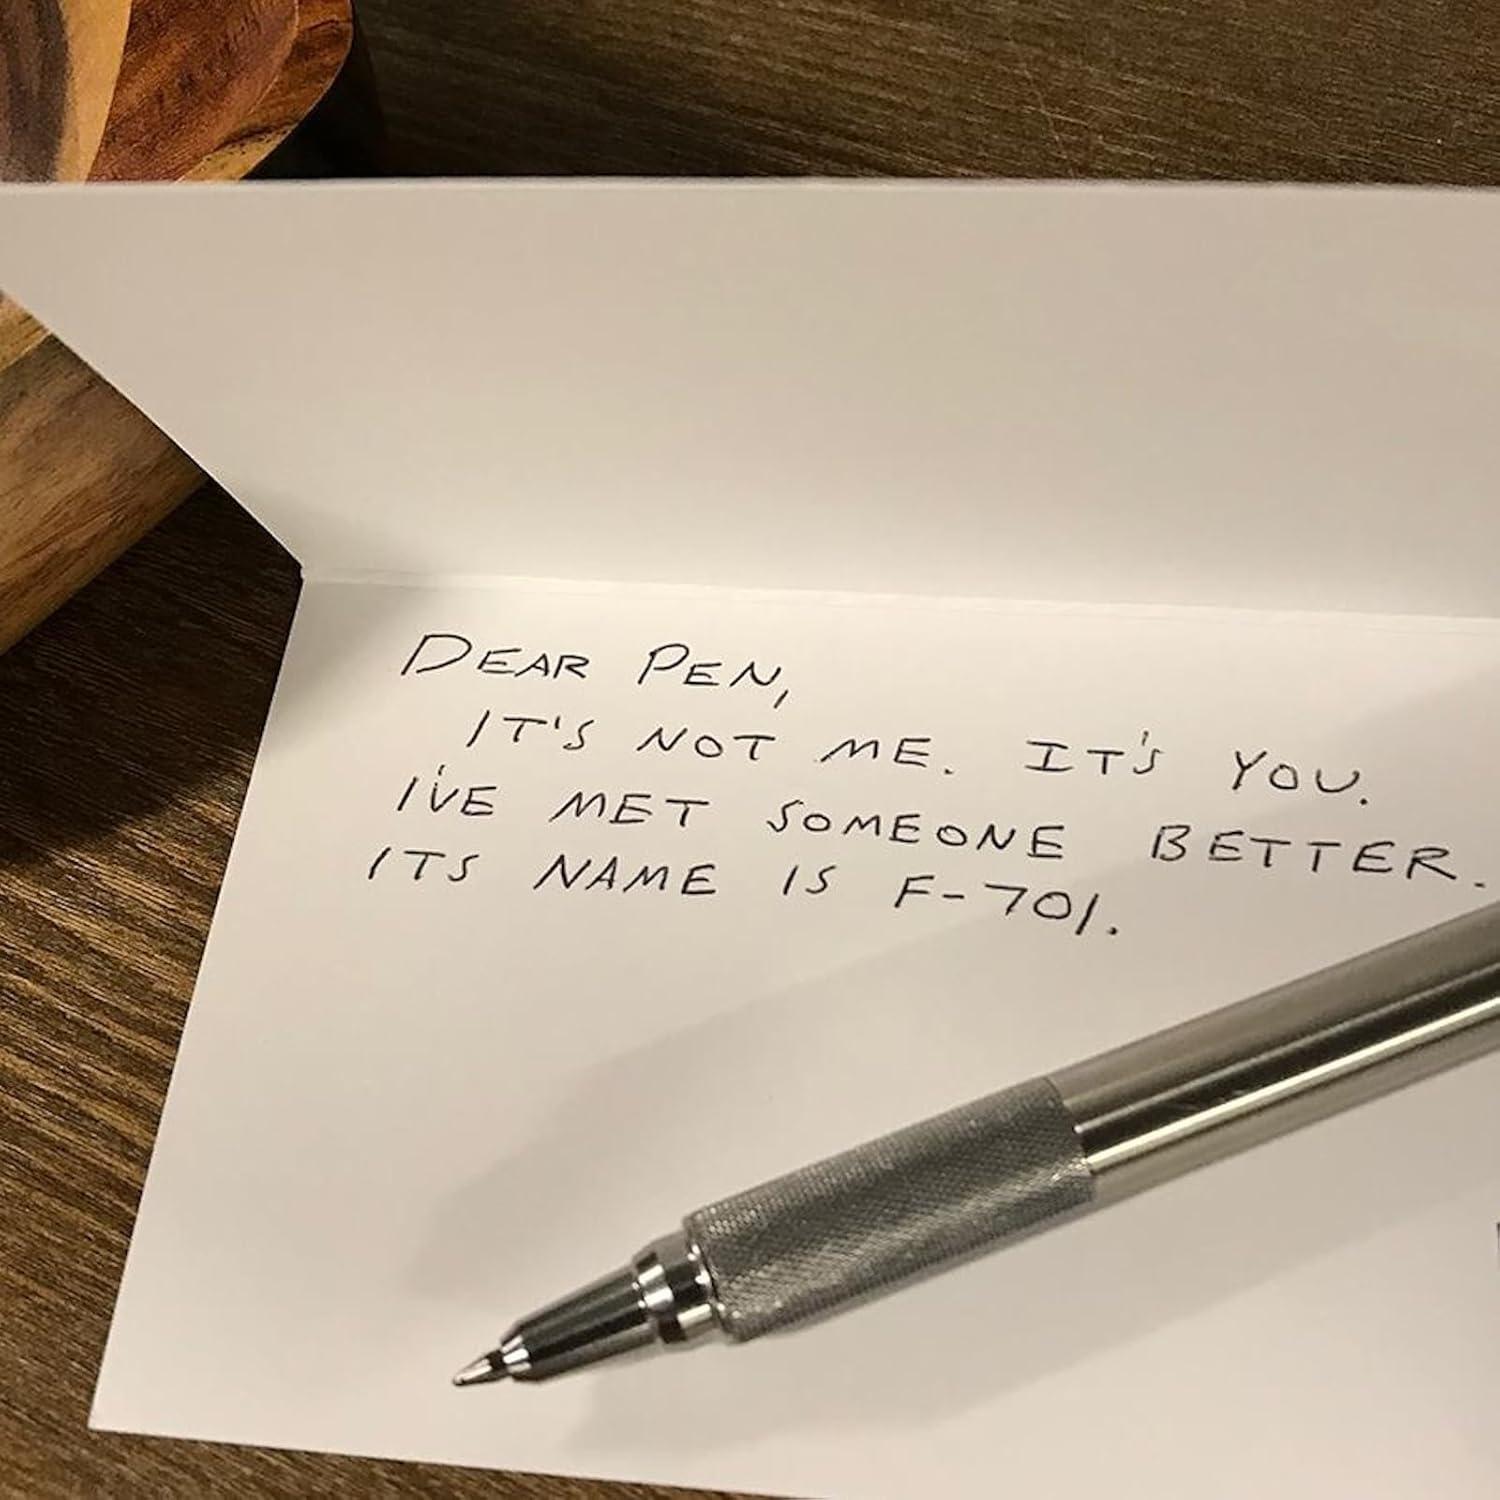 DEAR PEN,
IT'S NOT ME. IT'S YOU.
I'VE MET SOMEONE BETTER.
ITS NAME IS F-701.